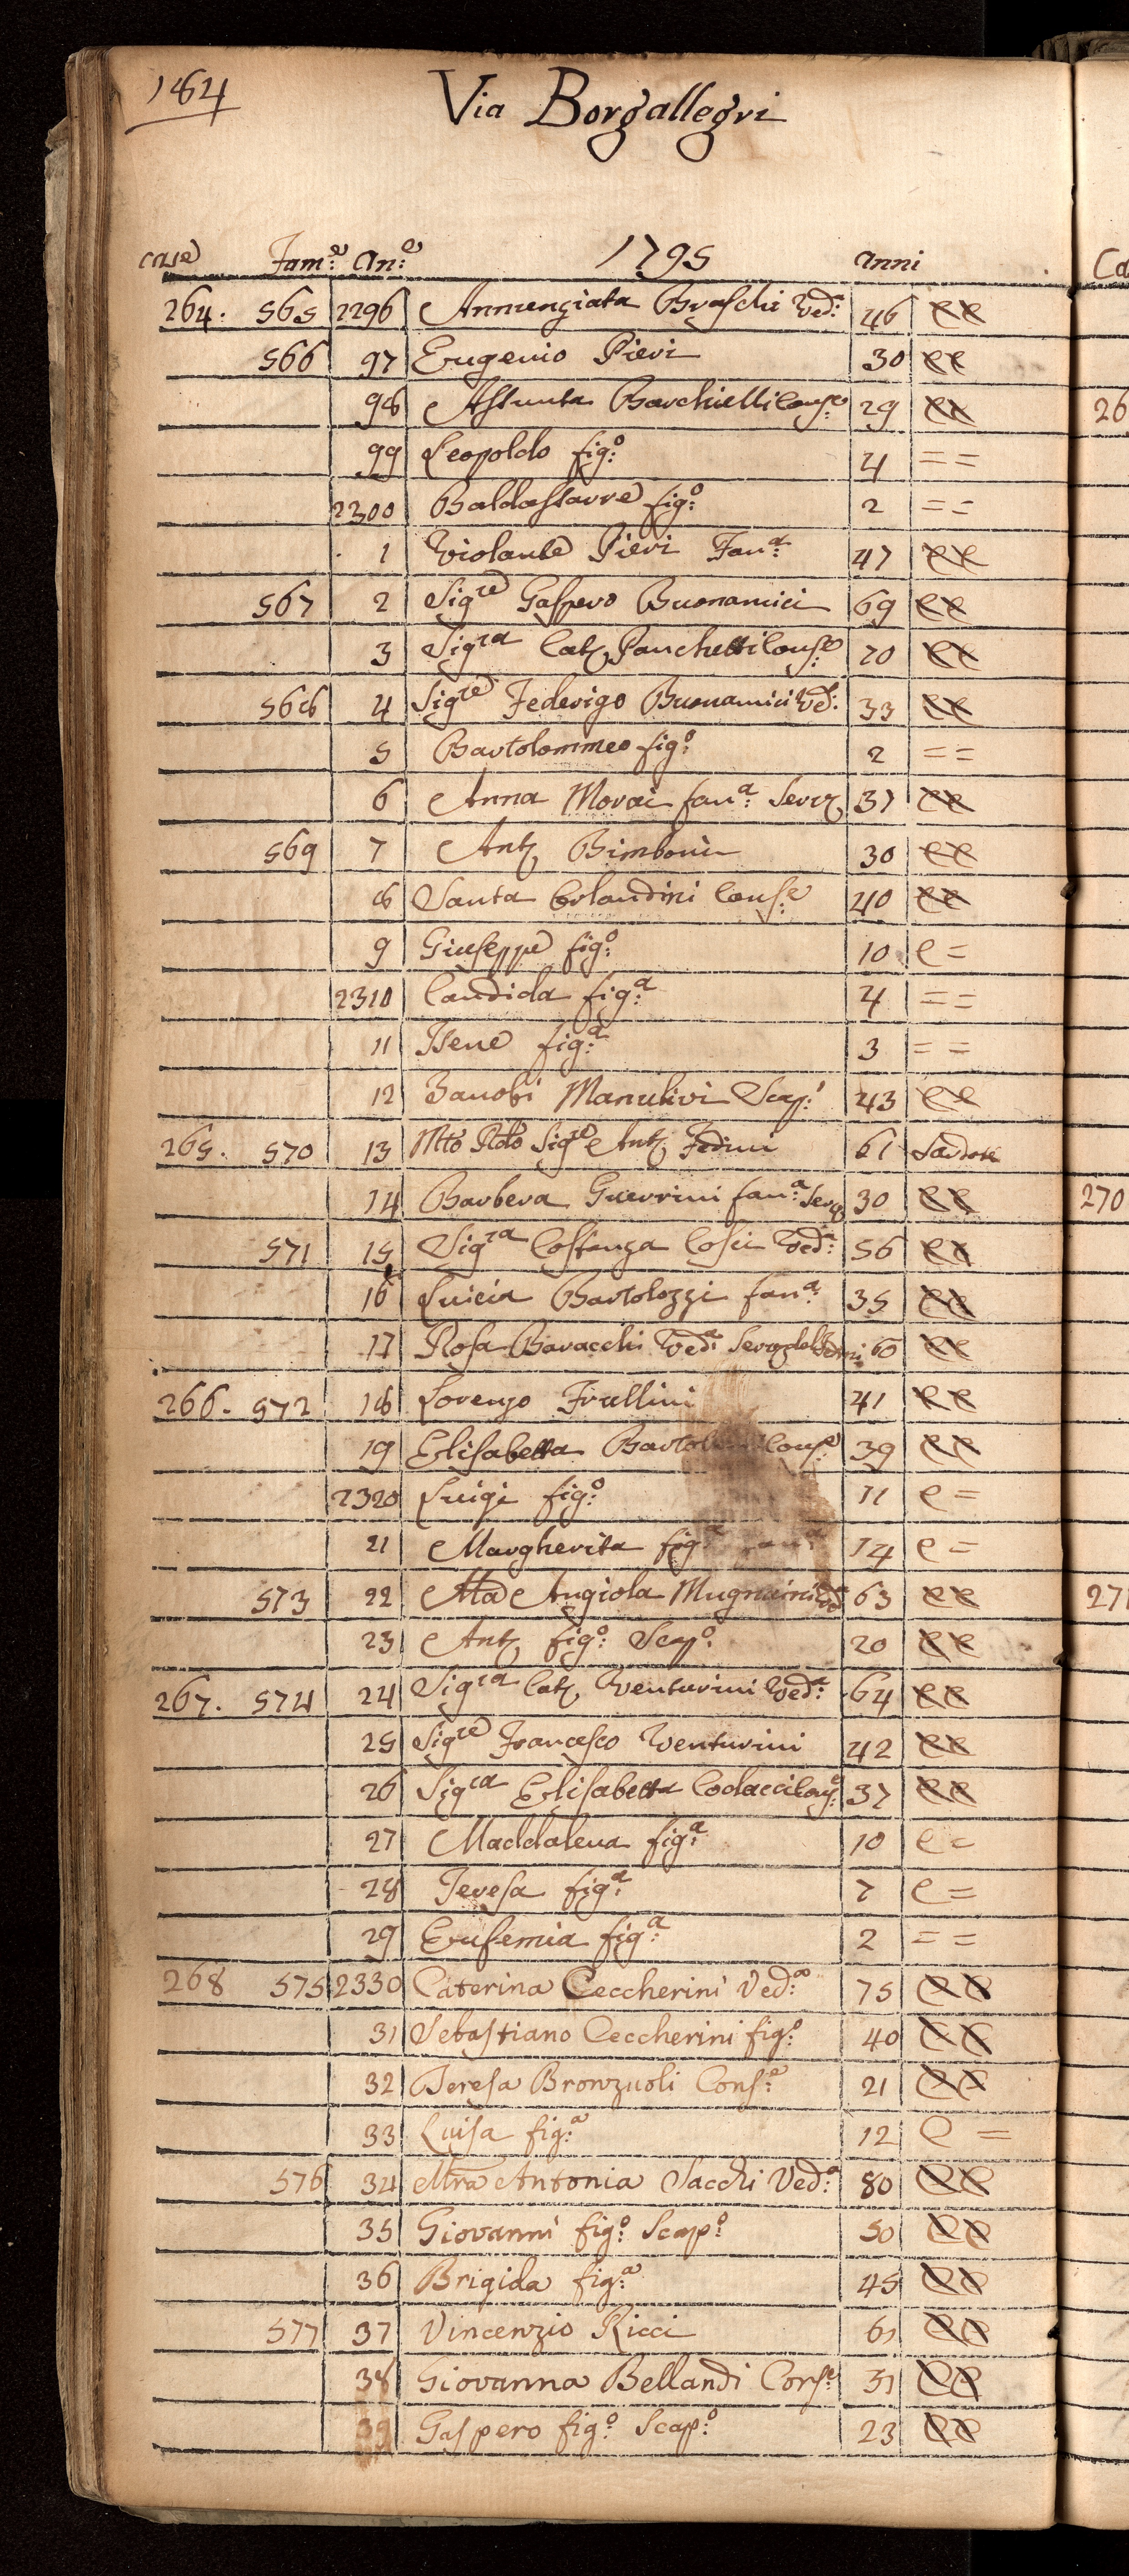 184
Via Borgallegri
case Fam:e An:e 1795 anni
264. 565 2296 Annunziata Braschi Ved:a 46 ee
566 97 Eugenio Pieri 30 ee
98 Assunta Barchielli Cons:e 29 ee
99 Leopoldo fig:o 4 = =
2300 Baldassarre fig:o 2 = =
1 Violante Pieri Fan:a 47 ee
567 2 Sigre Gaspero Buonamici 69 ee
3 Sigra Catᵃ Panchetti Cons:e 70 ee
568 4 Sigre Federigo Buonamici Ved: 33 ee
5 Bartolommeo fig:o 2 = =
6 Anna Morai fan:a Serva 37 ee
569 7 Antᵒ Bimboni 30 ee
8 Santa Orlandini Cons:e 40 ee
9 Giuseppe fig:o 10 e =
2310 Candida fig:a 4 = =
11 Irene fig:a 3 = =
12 Zanobi Manulivi Scap:o 43 ee
265. 570 13 Mto Rdo Sigre Antᵒ Fedini 61 Sacdote
14 Barbera Guerrini fan:a Serva 30 ee
571 15 Sigra Costanza Cosci Ved:a 56 ee
16 Luicia Bartolozzi fan:a 35 ee
17 Rosa Baracchi Ved:a Serva del Fedini 60 ee
266. 572 18 Lorenzo Frullini 41 ee
19 Elisabetta Cons:e 39 ee
2320 Luigi fig:o 11 e =
21 Margherita fig:a 14 e =
573 22 Ma Angiola Mugnaini Ved:a 63 ee
23 Antᵒ fig:o Scap:o 20 ee
267. 574 24 Sigra Catᵃ Venturini Ved:a 64 ee
25 Sigre Francesco Venturini 42 ee
26 Sigra Elisabetta Codacci Cons:e 37 ee
27 Maddalena fig:a 10 e =
28 Teresa fig:a 7 e =
29 Eufemia fig:a 2 = =
268 575 2330 Caterina Ceccherini Ved:a 75 ee
31 Sebastiano Ceccherini fig:o 40 ee
32 Teresa Bronzuoli Cons:e 21 ee
33 Luisa fig:a 12 e =
576 34 Mra Antonia Sacchi Ved:a 80 ee
35 Giovanni fig:o Scap:o 50 ee
36 Brigida fig:a 45 ee
577 37 Vincenzio Ricci 61 ee
38 Giovanna Bellandi Cons:e 31 ee
39 Gaspero fig:o Scap:o 23 ee
Ca
26
270
271